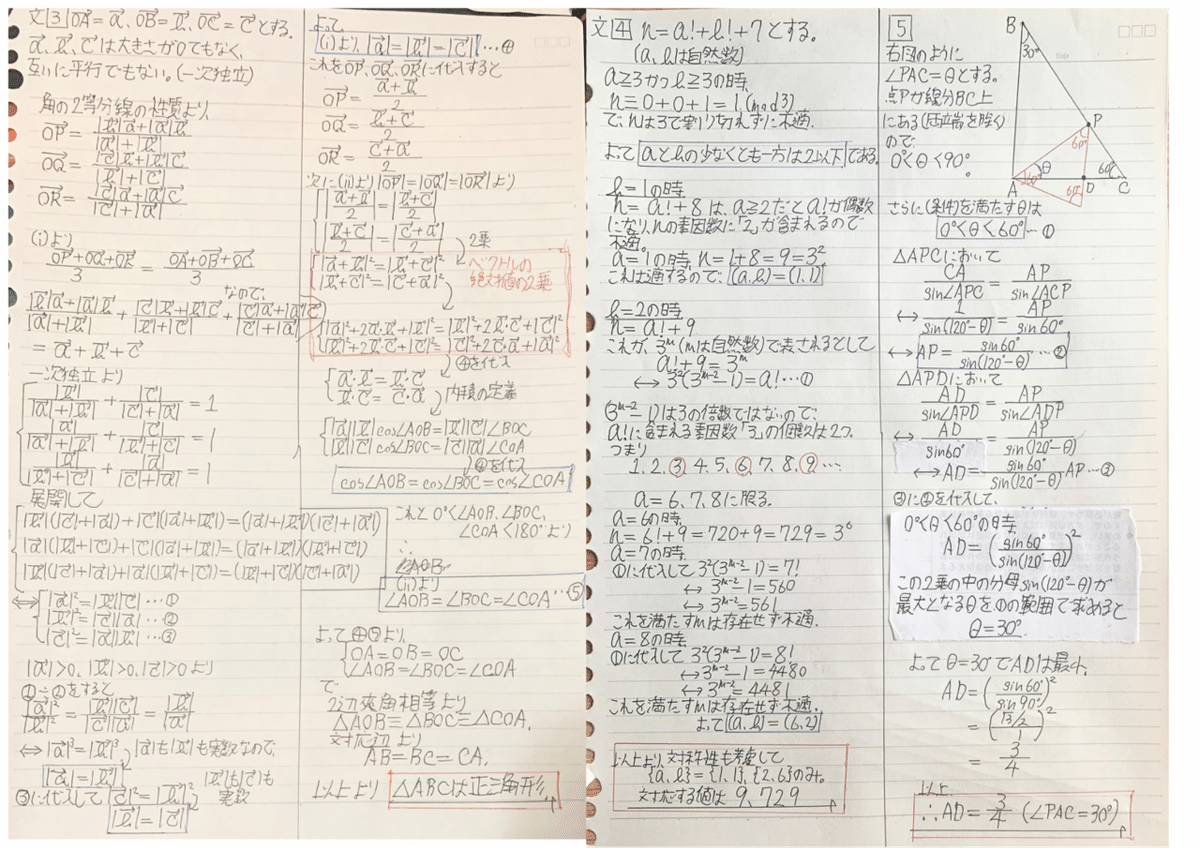 文[3] OA=a、OB=b、OC=cとする。
a、b、cは大きさが0でもなく、
互いに平行でもない。(一次独立)
角の2等分線の性質より、
OP=(|b|a+|a|b)/(|a|+|b|)
OQ=(|c|b+|b|c)/(|b|+|c|)
OR=(|c|a+|a|c)/(|c|+|a|)
(i)より
(OP+OQ+OR)/3=(OA+OB+OC)/3
なので、
(|b|a+|a|b)/(|a|+|b|)+(|c|b+|b|c)/(|b|+|c|)+(|c|a+|a|c)/(|c|+|a|)
=a+b+c
一次独立より
|b|/(|a|+|b|)+|c|/(|c|+|a|)=1
|a|/(|a|+|b|)+|c|/(|b|+|c|)=1
|b|/(|b|+|c|)+|a|/(|c|+|a|)=1
展開して
|b|(|c|+|a|)+|c|(|a|+|b|)=(|a|+|b|)(|c|+|a|)
|a|(|b|+|c|)+|c|(|a|+|b|)=(|a|+|b|)(|b|+|c|)
|b|(|c|+|a|)+|a|(|b|+|c|)=(|b|+|c|)(|c|+|a|)
⇔|a|²=|b||c|…①
|b|²=|c||a|…②
|c|²=|a||b|…③
|a|>0、|b|>0、|c|>0より
①÷②をすると
|a|²/|b|²=|b||c|/|c||a|=|b|/|a|
⇔|a|³=|b|³、|a|も|b|も実数なので、
|a|=|b|
③に代入して|c|²=|b|²、|b|も|c|も実数
|b|=|c|
よって
(i)より、|a|=|b|=|c|…④
これをOP、OQ、ORに代入すると
OP=(a+b)/2
OQ=(b+c)/2
OR=(c+a)/2
次に(ii)より|OP|=|OQ|=|OR|より
|(a+b)/2|=|(b+c)/2|
|(b+c)/2|=|(c+a)/2|
2乗
|a+b|²=|b+c|²
|b+c|²=|c+a|²
ベクトルの
絶対値の2乗
|a|²+2a・b+|b|²=|b|²+2b・c+|c|²
|b|²+2b・c+|c|²=|c|²+2c・a+|a|²
④を代入
a・b=b・c
b・c=c・a
内積の定義
|a||b|cos∠AOB=|b||c|∠BOC
|b||c|cos∠BOC=|c||a|∠COA
④を代入
cos∠AOB=cos∠BOC=cos∠COA
これと0°<∠AOB、∠BOC、
∠COA<180°より
∴
(ii)より
∠AOB=∠BOC=∠COA…⑤
よって④⑤より、
OA=OB=OC
∠AOB=∠BOC=∠COA
で
2辺夾角相等より
△AOB≡△BOC≡△COA.
対応辺より
AB=BC=CA.
以上より △ABCは正三角形
文[4] n=a!+b!+7とする。
(a、bは自然数)
a≧3かつb≧3の時、
n≡0+0+1=1、(mod3)
で、nは3で割り切れずに不適.
よって aとbの少なくとも一方は2以下である。
b=1の時
n=a!+8は、a≧2だとa!が偶数
になり、nの素因数に「2」が含まれるので
不適。
a=1の時、n=1+8=9=3²
これは適するので、(a,b)=(1,1)
b=2の時
n=a!+9
これが、3ᵐ(mは自然数)で表されるとして
a!+9=3ᵐ
↔3²(3ᵐ⁻²−1)=a!…①
(3ᵐ⁻²−1)は3の倍数ではないので、
a!に含まれる素因数「3」の個数は2つ。
つまり
1、2、③、4、5、⑥、7、8、⑨、…
a=6、7、8に限る。
a=6の時、
n=6!+9=720+9=729=3⁶
a=7の時、
①に代入して3²(3ᵐ⁻²−1)=7!
↔3ᵐ⁻²−1=560
↔3ᵐ⁻²=561
これを満たすmは存在せず不適.
a=8の時、
①に代入して3²(3ᵐ⁻²−1)=8!
↔3ᵐ⁻²−1=4480
↔3ᵐ⁻²=4481
これを満たすmは存在せず、不適.
よって(a,b)=(6,2)
以上より、対称性も考慮して
{a,b}={1,1}、{2,6}のみ。
対応する値は 9、729
[5]
右図のように
∠PAC=θとする。
点Pが線分BC上
にある(両端を除く)
ので、
0°<θ<90°。
B
30°
P
60°
θ
60°
60°
A
D
60°
C
さらに(条件)を満たすθは
0°<θ<60°…①
△APCにおいて
CA/sin∠APC=AP/sin∠ACP
↔1/sin(120°−θ)=AP/sin60°
↔AP=sin60°/sin(120°−θ)…②
△APDにおいて
AD/sin∠APD=AP/sin∠ADP
↔AD/sin60°=AP/sin(120°−θ)
↔AD=sin60°/sin(120°−θ) AP…③
③に②を代入して、
0°<θ<60°の時、
AD=(sin60°/sin(120°−θ))²
この2乗の中の分母sin(120°−θ)が
最大となるθを①の範囲で求めると
θ=30°.
よってθ=30°でADは最小.
AD=(sin60°/sin90°)²
=((√3/2)/1)²
=3/4
以上
∴AD=3/4 (∠PAC=30°)